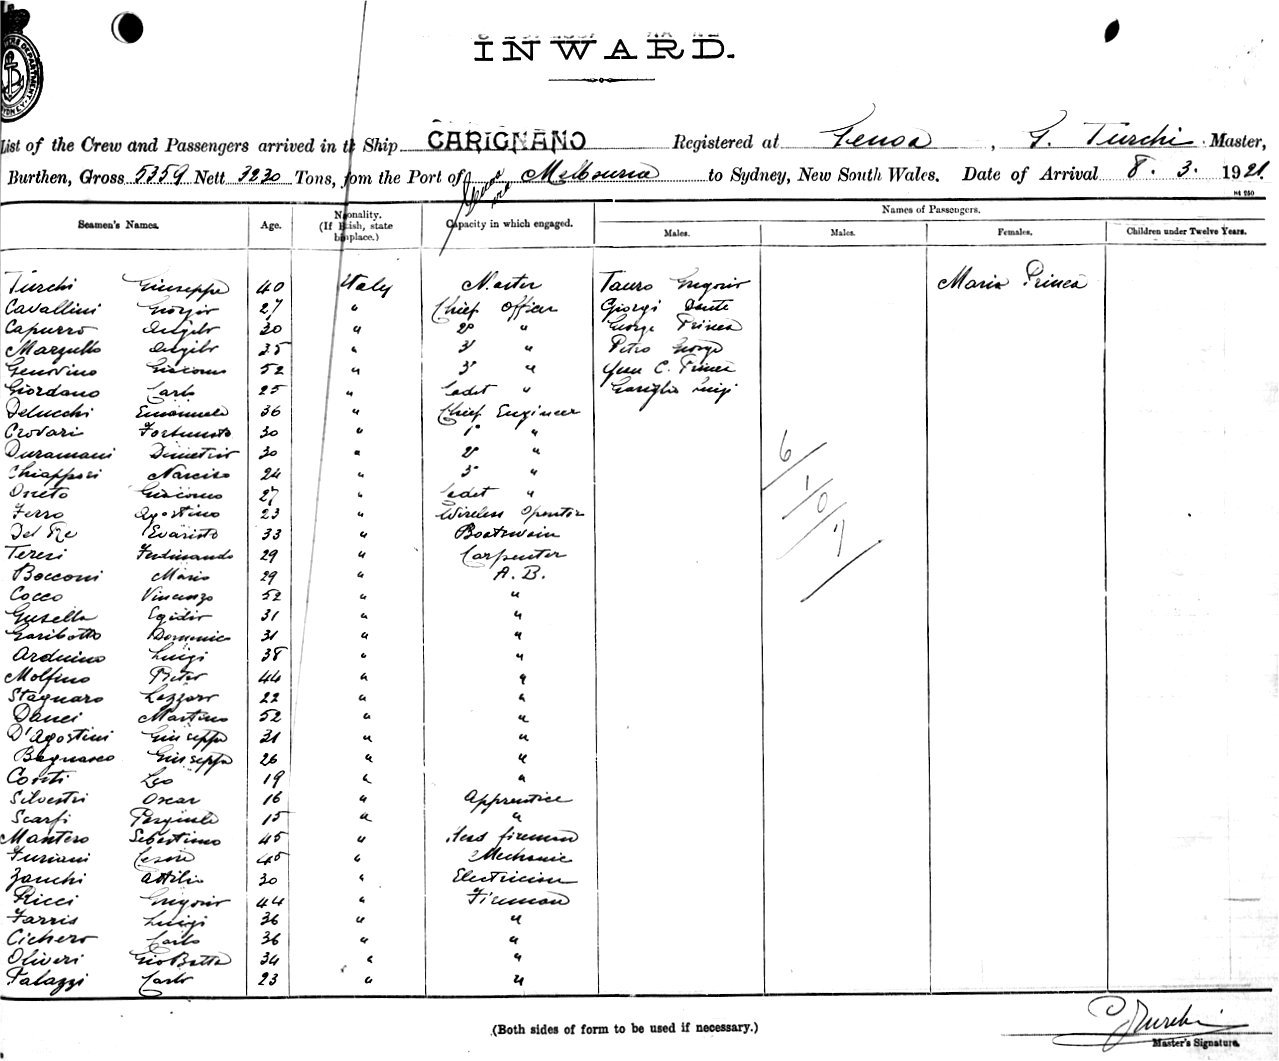 INWARD.
List of the Crew and Passengers arrived in the Ship CARIGNANO Registered at Genoa, G. Turchi Master,
Burthen, Gross 5359 Nett 3230 Tons, from the Port of Genoa via Melbourne to Sydney, New South Wales. Date of Arrival 8. 3. 1921.
Seamen's Names. Age. Nationality. (If British, state birthplace.) Capacity in which engaged. Names of Passengers.
Males. Males. Females. Children under Twelve Years.
Turchi Giuseppe 40 Italy Master Tauro Gregorio Maria Princa
Cavallini Giorgio 27 " Chief Officer Giorgi Dante
Capurro Angelo 30 " 2° " George Princa
Marzullo Angelo 35 " 3° " Petro George
Genovino Giacomo 52 " 3° " C. Princa
Giordano Carlo 25 " Cadet " Gariglio Luigi
Delucchi Emanuele 36 " Chief Engineer
Crovari Fortunato 30 " 1° "
Duramani Dimitrio 30 " 2° "
Chiappori Narciso 24 " 3° "
Oneto Giacomo 27 " Cadet "
Ferro Agostino 23 " Wireless Operator
Del Re Evaristo 33 " Boatswain
Teresi Ferdinando 29 " Carpenter
Bocconi Mario 29 " A.B.
Cocco Vincenzo 52 " "
Gusella Egidio 31 " "
Garibotto Domenico 31 " "
Arduino Luigi 38 " "
Molfino Pietro 44 " "
Stagnaro Lazzaro 22 " "
Danei Martino 52 " "
D'Agostini Giuseppe 31 " "
Bagnasco Giuseppe 26 " "
Conti Leo 19 " "
Silvestri Oscar 16 " Apprentice
Scarfi Pasquale 15 " "
Mantero Sebastiano 45 " Head fireman
Furiani Cesare 45 " Mechanic
Zanchi Attilio 30 " Electrician
Ricci Gregorio 44 " Fireman
Farris Luigi 36 " "
Cichero Carlo 36 " "
Oliveri Gio Batta 34 " "
Palazzi Carlo 23 " "
6/1/0/7/
(Both sides of form to be used if necessary.)
G Turchi
Master's Signature.